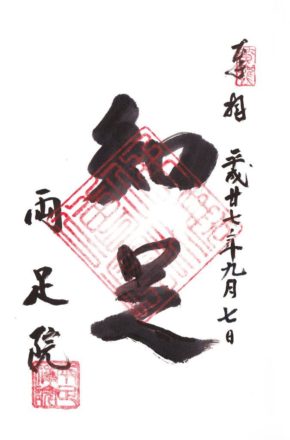 奉拝
平成廿七年九月七日
知足
兩足院